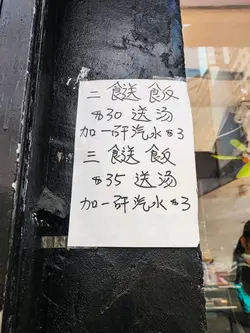 二 餸 飯
$30 送汤
加一研汽水 $3
三 餸 飯
$35 送汤
加一研汽水 $3